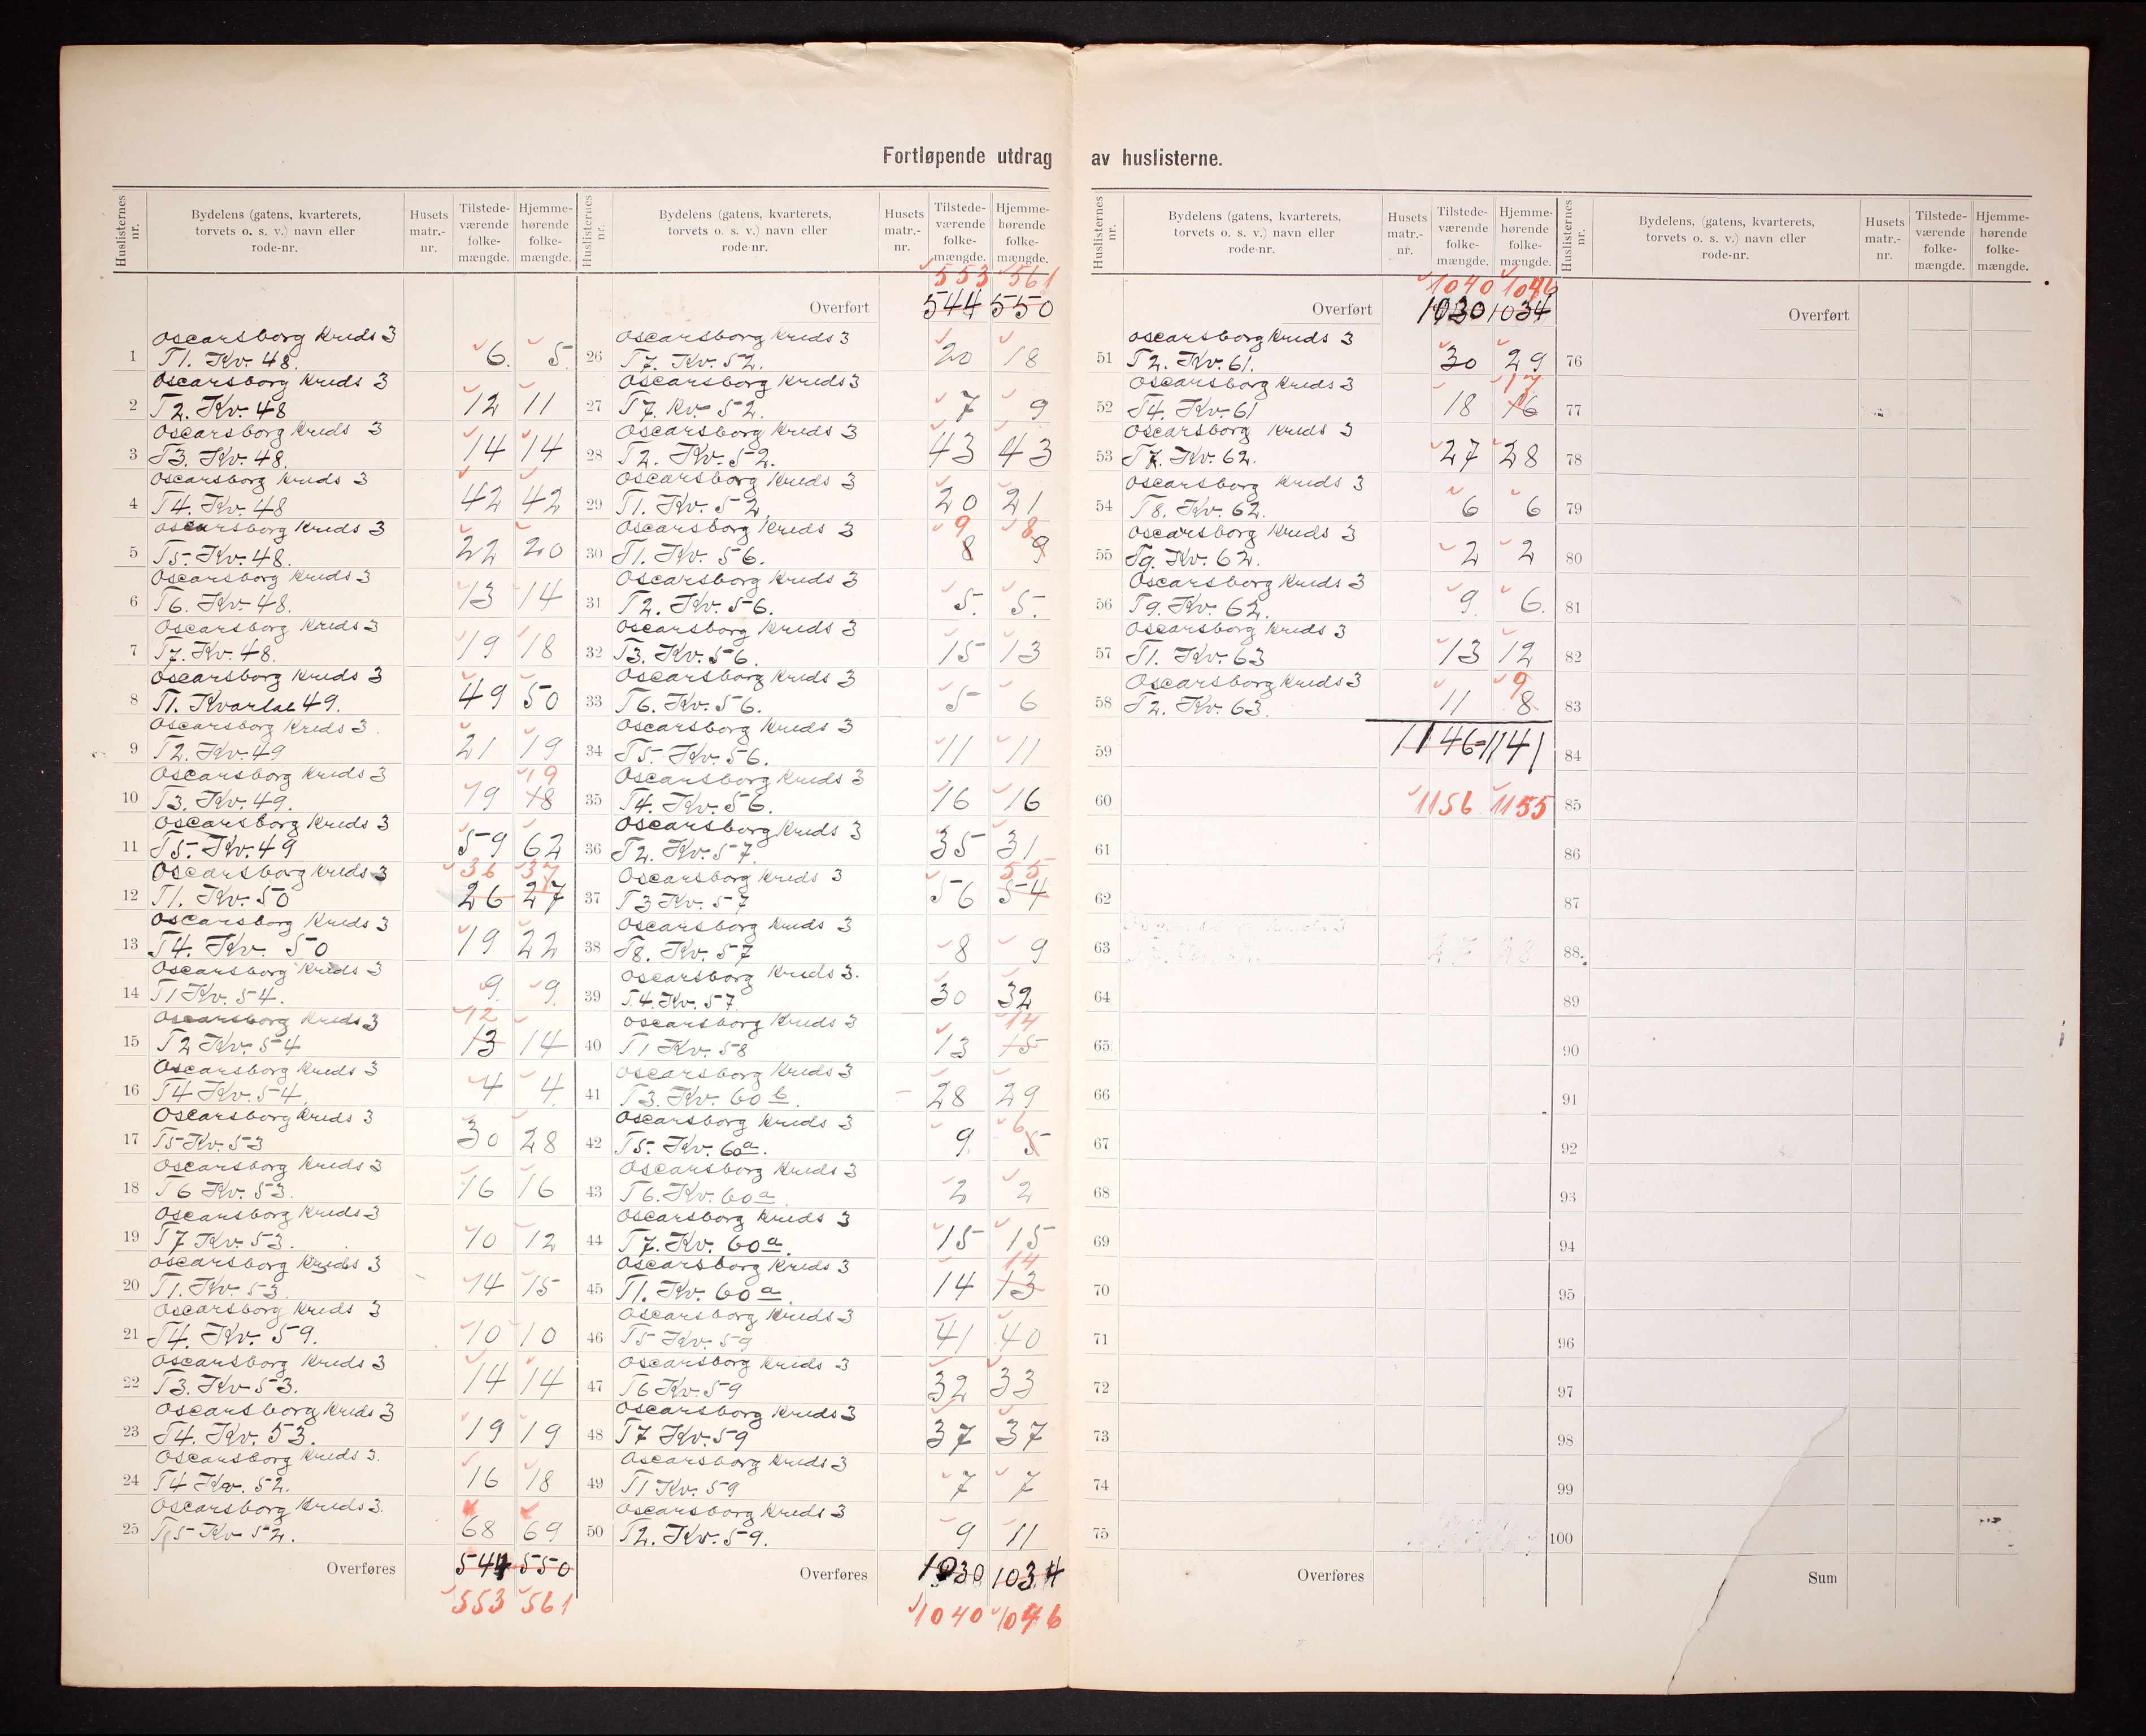 Fortløpende utdrag av huslisterne.
Huslisternes nr. Bydelens (gatens, kvarterets, torvets o. s. v.) navn eller rode-nr. Husets matr.-nr. Tilstede-værende folke-mængde. Hjemme-hørende folke-mængde.
Oscarsborg Kreds 3
1 T1. Kv. 48. 6. 5.
Oscarsborg Kreds 3
2 T2. Kv. 48 12 11
Oscarsborg Kreds 3
3 T3. Kv. 48. 14 14
Oscarsborg Kreds 3
4 T4. Kv. 48 42 42
Oscarsborg Kreds 3
5 T5. Kv. 48. 22 20
Oscarsborg Kreds 3
6 T6. Kv. 48. 13 14
Oscarsborg Kreds 3
7 T7. Kv. 48. 19 18
Oscarsborg Kreds 3
8 T1. Kvartal 49. 49 50
Oscarsborg Kreds 3.
9 T2. Kv. 49 21 19
Oscarsborg Kreds 3 19
10 T3. Kv. 49. 19 18
Oscarsborg Kreds 3
11 T5. Kv. 49 59 62
Oscarsborg Kreds 3 36 37
12 T1. Kv. 50 26 27
Oscarsborg Kreds 3
13 T4. Kv. 50 19 22
Oscarsborg Kreds 3
14 T1 Kv. 54. 9. 9.
Oscarsborg Kreds 3 12
15 T2 Kv. 54 13 14
Oscarsborg Kreds 3
16 T4 Kv. 54. 4 4.
Oscarsborg Kreds 3
17 T5 Kv. 53 30 28
Oscarsborg Kreds 3
18 T6 Kv. 53. 16 16
Oscarsborg Kreds 3
19 T7 Kv. 53. 10 12
Oscarsborg Kreds 3
20 T1. Kv. 53. 14 15
Oscarsborg Kreds 3
21 T4. Kv. 59. 10 10
Oscarsborg Kreds 3
22 T3. Kv 53. 14 14
Oscarsborg Kreds 3
23 T4. Kv. 53. 19 19
Oscarsborg Kreds 3.
24 T4 Kv. 52. 16 18
Oscarsborg Kreds 3.
25 T5 Kv 52. 68 69
Overføres 544 550
553 561
Huslisternes nr. Bydelens (gatens, kvarterets, torvets o. s. v.) navn eller rode-nr. Husets matr.-nr. Tilstede-værende folke-mængde. Hjemme-hørende folke-mængde.
553 561
Overført 544 550
Oscarsborg Kreds 3
26 T7. Kv. 52. 20 18
Oscarsborg Kreds 3
27 T7. Kv. 52. 7 9
Oscarsborg Kreds 3
28 T2. Kv. 52. 43 43
Oscarsborg Kreds 3
29 T1. Kv. 52. 20 21
Oscarsborg Kreds 3 9 8
30 T1. Kv. 56. 8 9
Oscarsborg Kreds 3
31 T2. Kv. 56. 5. 5.
Oscarsborg Kreds 3
32 T3. Kv. 56. 15 13
Oscarsborg Kreds 3
33 T6. Kv. 56. 5 6
Oscarsborg Kreds 3
34 T5. Kv. 56. 11 11
Oscarsborg Kreds 3
35 T4. Kv. 56. 16 16
Oscarsborg Kreds 3
36 T2. Kv. 57. 35 31
Oscarsborg Kreds 3 55
37 T3 Kv. 57 56 54
Oscarsborg Kreds 3
38 T8. Kv. 57 8 9
Oscarsborg Kreds 3.
39 T4. Kv. 57 30 32
Oscarsborg Kreds 3 14
40 T1 Kv. 58 13 15
Oscarsborg Kreds 3
41 T3. Kv. 60 b. 28 29
Oscarsborg Kreds 3 6
42 T5. Kv. 60a. 9. 5
Oscarsborg Kreds 3
43 T6. Kv. 60a. 2 2
Oscarsborg Kreds 3
44 T7. Kv. 60a. 15 15
Oscarsborg Kreds 3 14
45 T1. Kv. 60a. 14 13
Oscarsborg Kreds 3
46 T5 Kv. 59 41 40
Oscarsborg Kreds 3
47 T6 Kv. 59 32 33
Oscarsborg Kreds 3
48 T7 Kv. 59 37 37
Oscarsborg Kreds 3
49 T1 Kv. 59 7 7
Oscarsborg Kreds 3
50 T2. Kv. 59. 9 11
Overføres 1030 1034
1040 1046
Huslisternes nr. Bydelens (gatens, kvarterets, torvets o. s. v.) navn eller rode-nr. Husets matr.-nr. Tilstede-værende folke-mængde. Hjemme-hørende folke-mængde.
1040 1046
Overført 1030 1034
Oscarsborg Kreds 3
51 T2. Kv. 61. 30 29
Oscarsborg Kreds 3 17
52 T4. Kv. 61 18 16
Oscarsborg Kreds 3
53 T7. Kv. 62. 27 28
Oscarsborg Kreds 3
54 T8. Kv. 62. 6 6
Oscarsborg Kreds 3
55 T9. Kv. 62. 2 2
Oscarsborg Kreds 3
56 T9. Kv. 62. 9. 6.
Oscarsborg Kreds 3
57 T1. Kv. 63 13 12
Oscarsborg Kreds 3 9
58 T2. Kv. 63. 11 8
59 1146=1141
60 1156 1155
61
62
63
64
65
66
67
68
69
70
71
72
73
74
75
Overføres
Huslisternes nr. Bydelens, (gatens, kvarterets, torvets o. s. v.) navn eller rode-nr. Husets matr.-nr. Tilstede-værende folke-mængde. Hjemme-hørende folke-mængde.
Overført
76
77
78
79
80
81
82
83
84
85
86
87
88.
89
90
91
92
93
94
95
96
97
98
99
100
Sum